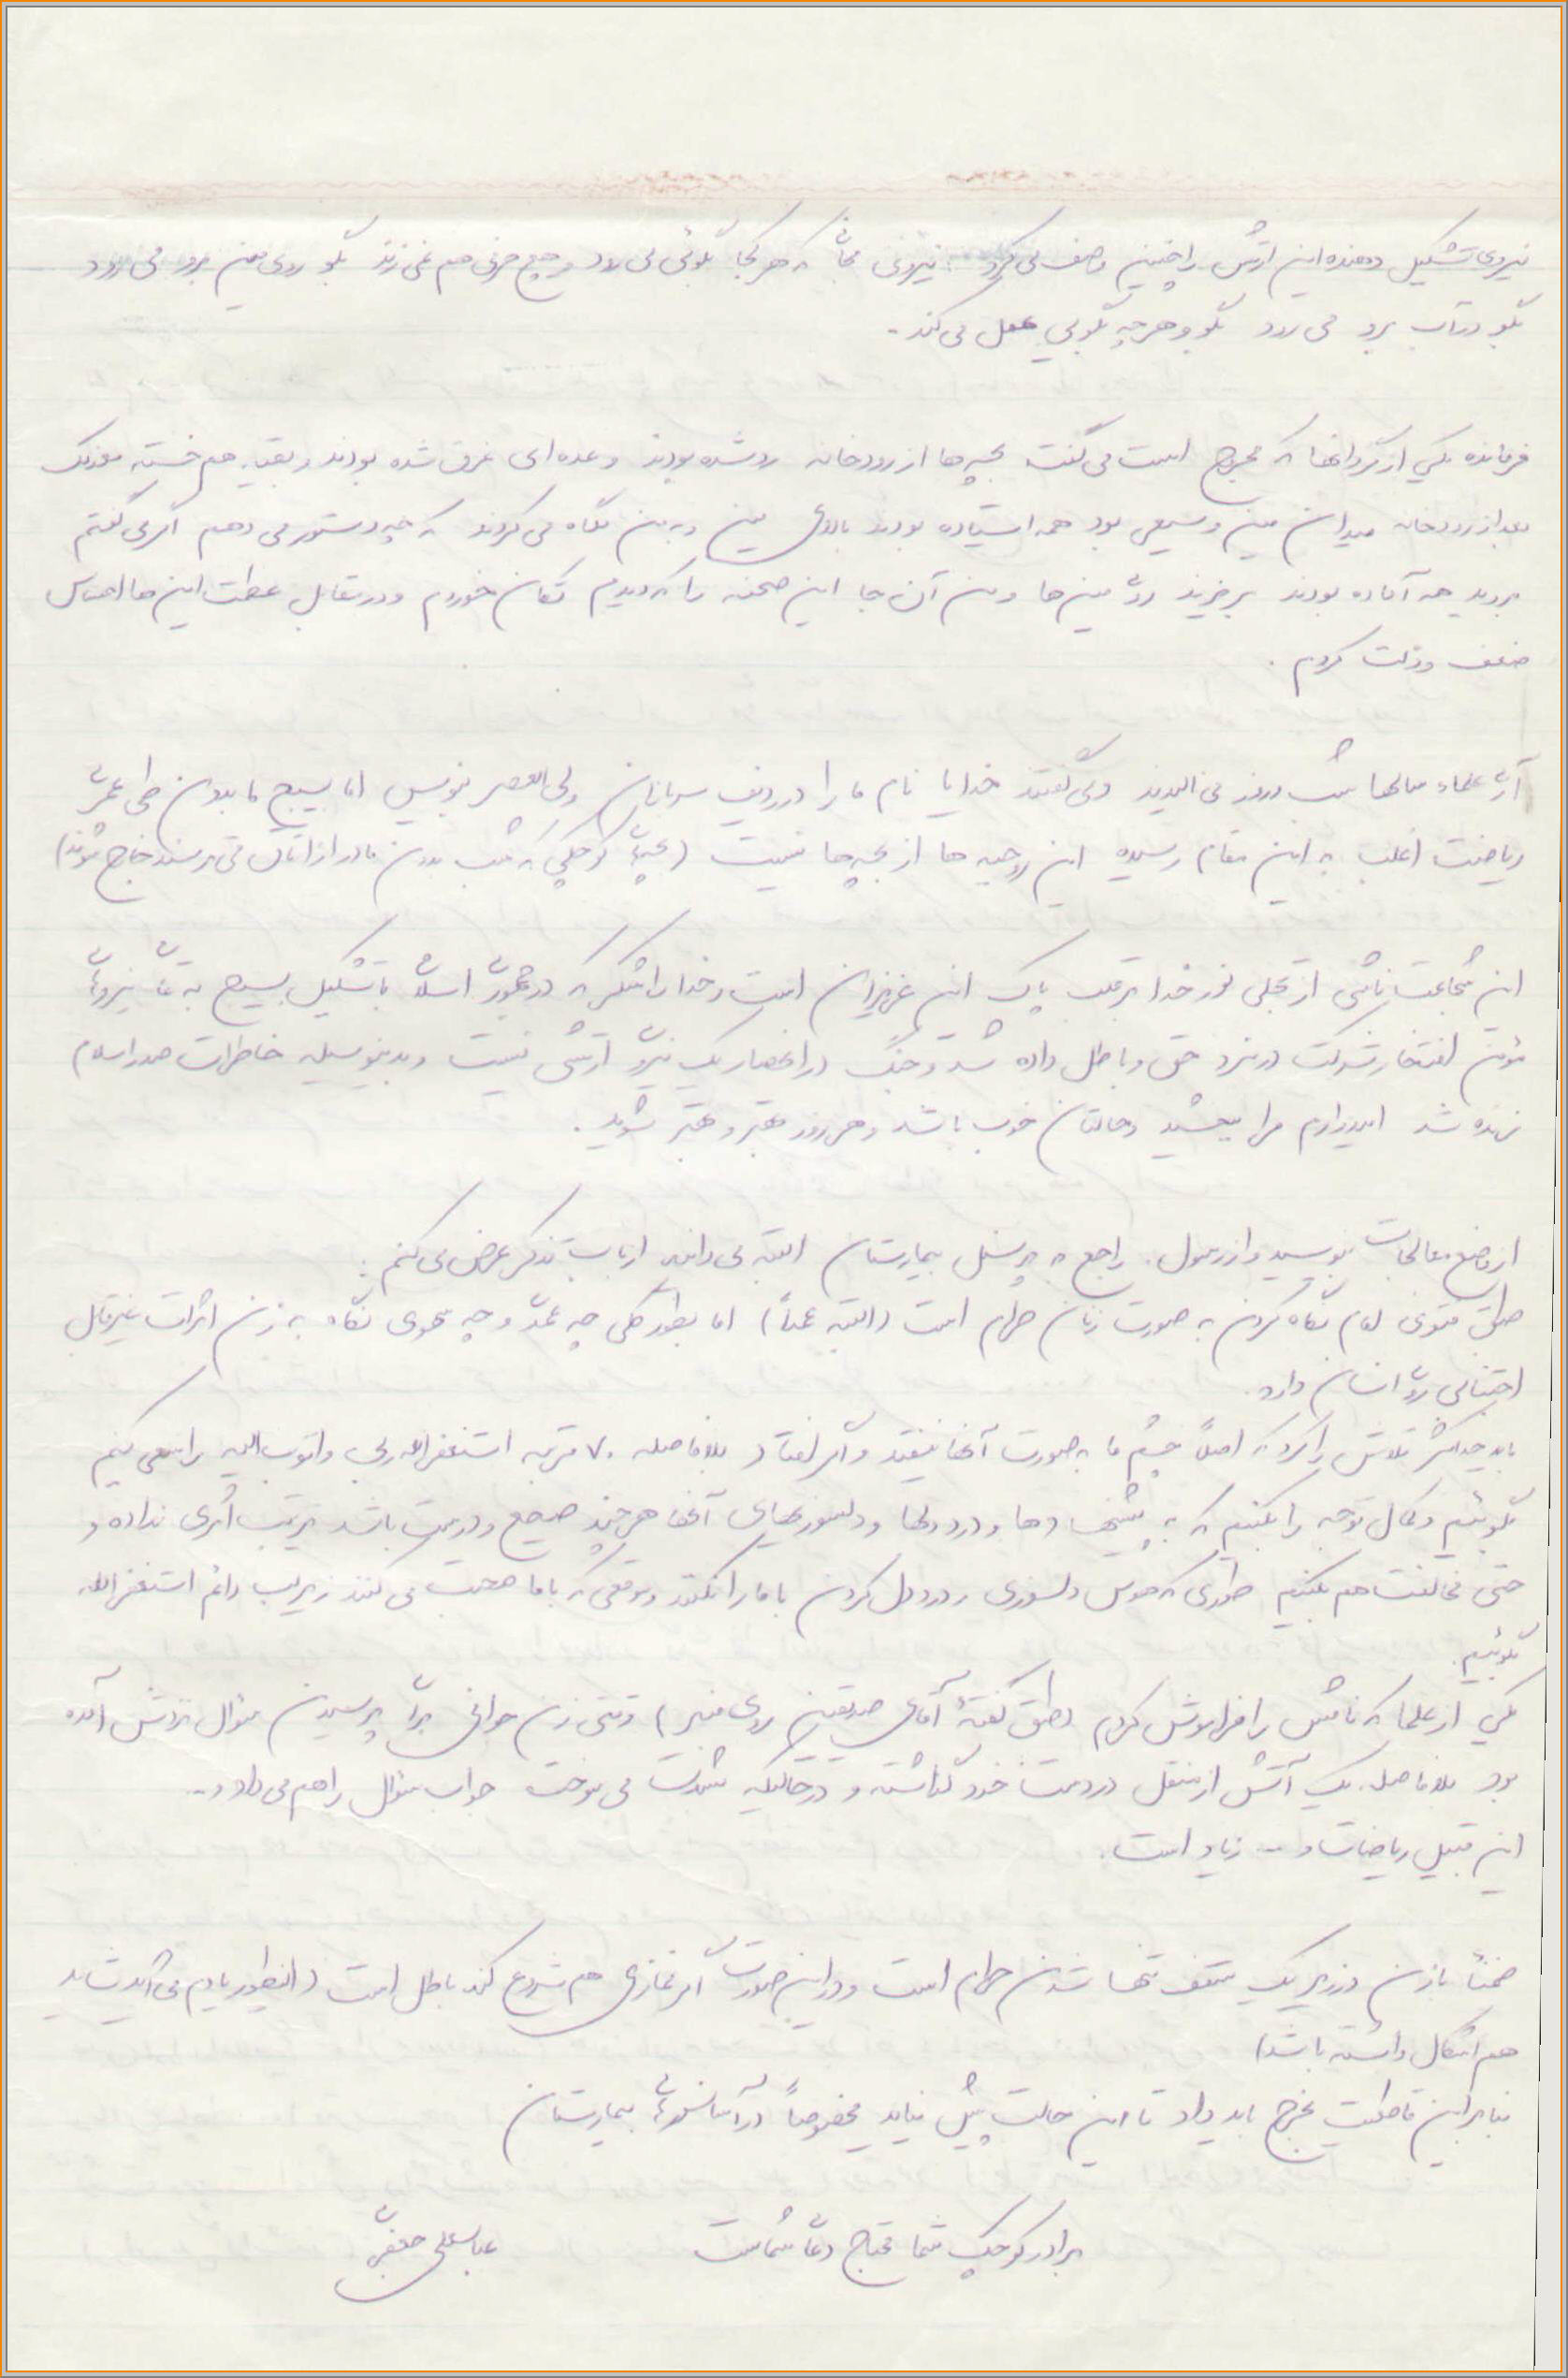 نیروی تشکیل دهنده این ارتش را چنین وصف می کرد: نیروئی که هر کجا بگوئی می رود و هیچ حرفی هم نمی زند بگو روی مین برود می رود
بگو در آب برود می رود بگو و هر چه بگویی عمل می کند.
فرمانده یکی از گردانها که مجروح است می گفت بچه ها از رودخانه رد شده بودند و عده ای غرق شده بودند و بقیه هم خسته
بعد از رودخانه میدان مین وسیعی بود همه ایستاده بودند بالای مین و به من نگاه می کردند که چه دستور می دهم اگر می گفتم
بروید همه آماده بودند بریزند روی مین ها و من آن جا این صحنه را که دیدم تکان خوردم و در مقابل عظمت این ها احساس
ضعف و ذلت کردم.
آری علماء سالها شب و روز می نالیدند و می گفتند خدایا نام ما را در ردیف سربازان ولی العصر بنویس اما بسیج ما بدون طی عمری
ریاضت اغلب به این مقام رسیده این روحیه ها از بچه ها نیست (بچه های کوچکی که شب بدون مادر از اتاق می ترسند خارج شوند)
این شجاعت ناشی از تجلی نور خدا بر قلب پاک این عزیزان است و خدا را شکر که در جمهوری اسلامی با تشکیل بسیج به تمامی نیروهای
مؤمن افتخار شرکت در نبرد حق و باطل داده شد و جنگ در انحصار یک نیروی ارتشی نیست و بدینوسیله خاطرات صدر اسلام
زنده شد امیدوارم مرا ببخشید و حالتان خوب باشد و هر روز بهتر و بهتر شوید.
از وضع معالجات بنویسید و از رسول. راجع به پرسنل بیمارستان البته می دانید از باب تذکر عرض می کنم:
طبق فتوی امام نگاه کردن به صورت زنان حرام است (البته عمداً) اما بطور کلی چه عمدی و چه سهوی نگاه به زن اثرات غیر قابل
اجتنابی روی انسان دارد.
باید حداکثر تلاش را کرد که اصلاً چشم ما به صورت آنها نیفتد و اگر افتاد بلافاصله ۷۰ مرتبه استغفرالله ربی و اتوب الیه را سعی کنیم
بگوییم و کمال توجه را بکنیم که به پیشنهادها و درددلها و دلسوزیهای آنها هر چند صحیح و درست باشد ترتیب اثری نداده و
حتی مخالفت هم بکنیم طوری که هوس دلسوزی و درد دل کردن با ما را نکنند و موقعی که با ما صحبت می کنند زیر لب دائم استغفرالله
بگوئیم.
یکی از علما که نامش را فراموش کردم (طبق گفته آقای صدیقین روی منبر) وقتی زن جوانی برای پرسیدن سؤال نزدش آمده
بود بلافاصله یک آتش از منقل در دست خود گذاشته و در حالیکه بشدت می سوخت جواب سؤال را هم می داد و...
این قبیل ریاضات و... زیاد است.
ضمناً با زن در زیر یک سقف تنها شدن حرام است و در این صورت اگر نمازی هم شروع کند باطل است (اینطور یادم می آید شاید
هم اشکال داشته باشد)
بنابراین قاطعیت بخرج باید داد تا این حالت پیش نیاید مخصوصاً در آسانسورهای بیمارستان
برادر کوچک شما محتاج دعای شماست
عباسعلی جعفری